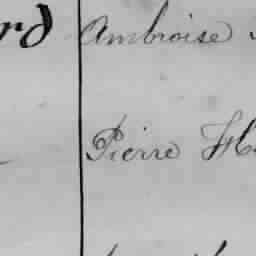 rd Ambroise
Pierre